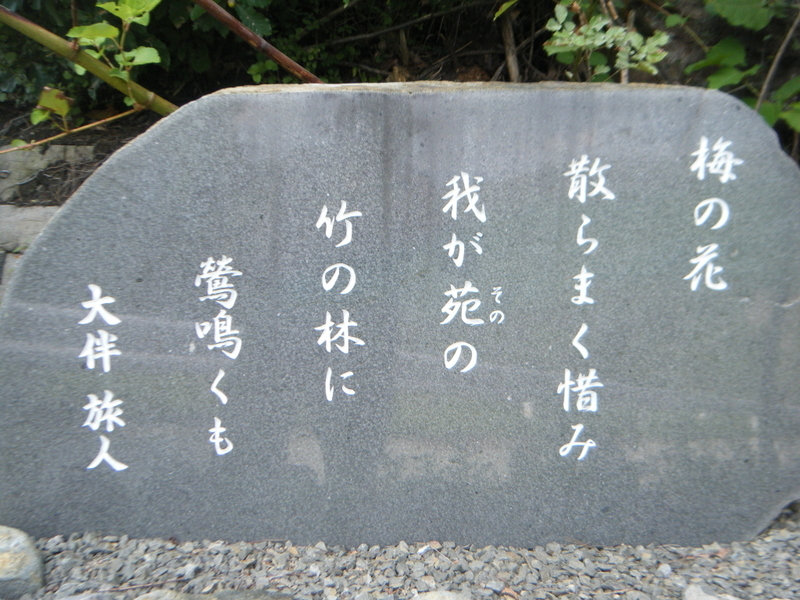 梅の花
散らまく惜み
我が苑の
その
竹の林に
鶯鳴くも
大伴 旅人